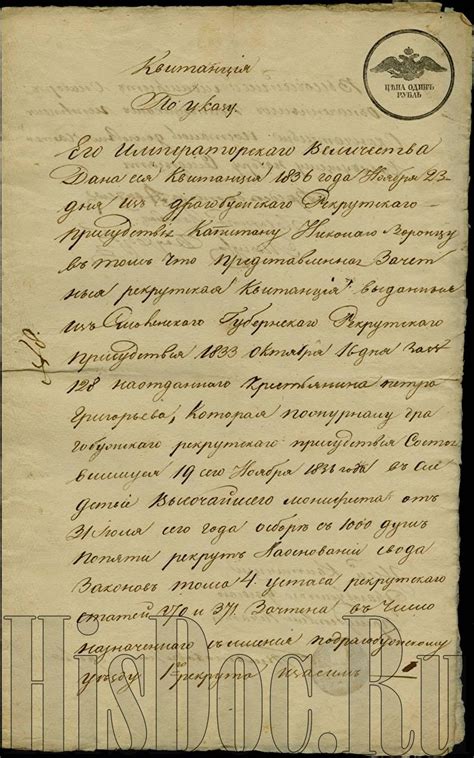 ЦѢНА ОДИНЪ
РУБЛЬ
Квитанція
По указу
Его Императорскаго Величества
Дана сія Квитанція 1836 года Ноября 23
дня изъ Драгобужскаго Рекрутскаго
присудствія Капитану Николаю
въ томъ что представленная Зачет
ныя рекрутская Квитанція выданныя
изъ Смоленскаго Губернскаго Рекрутскаго
присудствія 1833 Октября 16 дня за №
128 наотданнаго Крестьянина петра
Григорьева, Которая пожурналу дра
гобужскаго рекрутскаго присудствія Состо
явшемуся 19 сего Ноября 1836 года въ Слѣ
дствій Высочайшего манифеста отъ
31 Июля сего года осборѣ съ 1000 душъ
Попяти рекрутъ Наоснованій свода
Законовъ тома 4 устава рекрутскаго
статей 370 и 371 Зачтена въ Число
назначеннаго подрагобужскому
уѣзду 1го рекрута
HisDoc.Ru